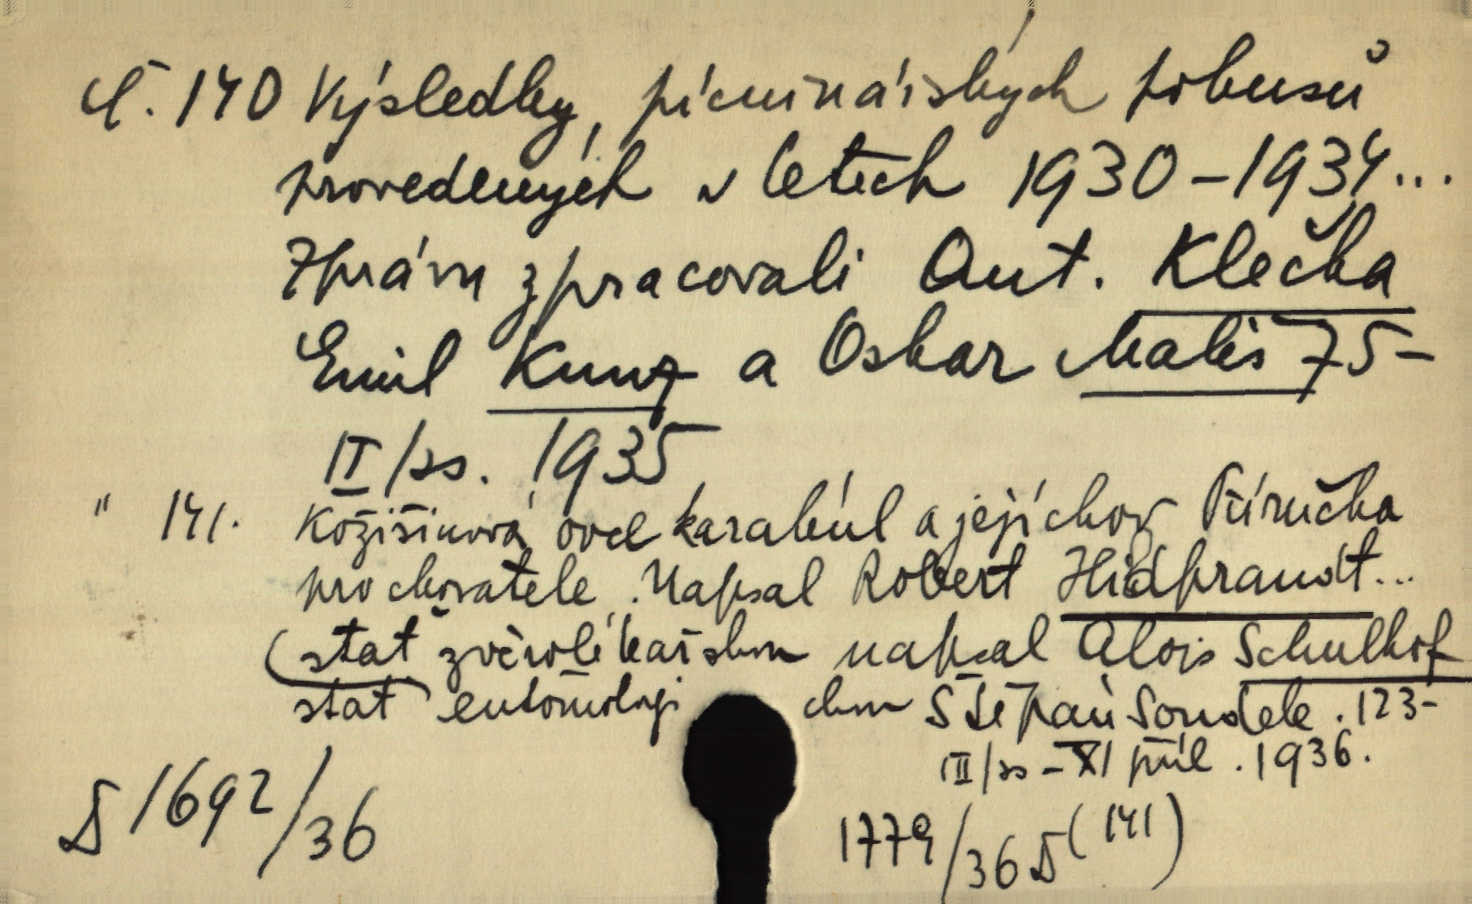 č. 140 Výsledky pícninářských pokusů
provedených v letech 1930-1934...
Zprávu zpracovali Ant. Klečka
Emil Kunz a Oskar Mališ 75-
II/ss. 1935
" 141. Kožišinová ovce karakúl a její chov Příručka
pro chovatele. Napsal Robert Hidprandt...
(stať zvěrolékařskou napsal Alois Schulhof
stať entomologi ckou Štěpán Soudek. 123-
III/ss - XI příl. 1936.
D 1692/36
1779/36 D (141)